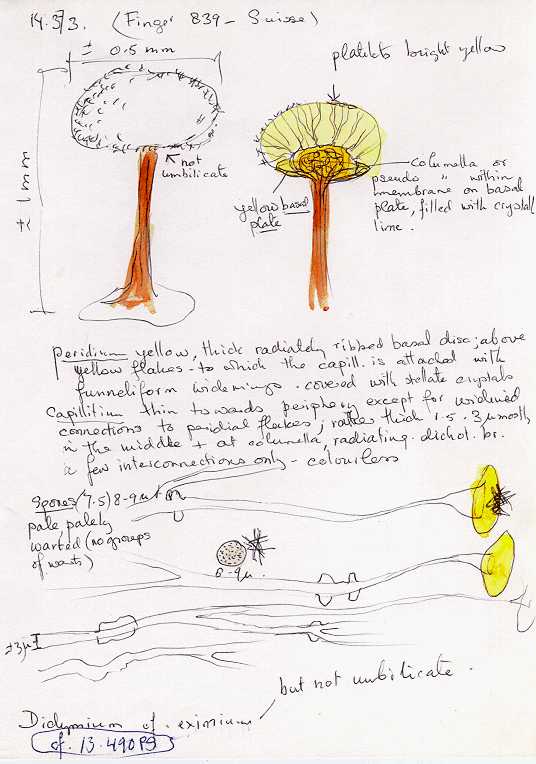 14.373. (Finger 839 - Suisse)
± 0.5 mm
platelets bright yellow
± 1 mm
not
umbilicate
yellow basal
plate
columella or
pseudo " within
membrane on basal
plate, filled with crystall
lime.
Peridium yellow, thick radiately ribbed basal disc; above
yellow flakes - to which the capill. is attached with
funneliform widenings. covered with stellate crystals
Capillitium thin towards periphery except for widened
connections to peridial flakes; rather thick 1.5 - 3µ mostly
in the middle + at columella, radiating. dichot. br.
a few interconnections only - colourless
Spores (7.5) 8-9µ
pale palely
warted (no groups
of warts)
8-9µ.
±3µ
but not umbilicate.
Didymium cf. eximium
cf. 13.490PS